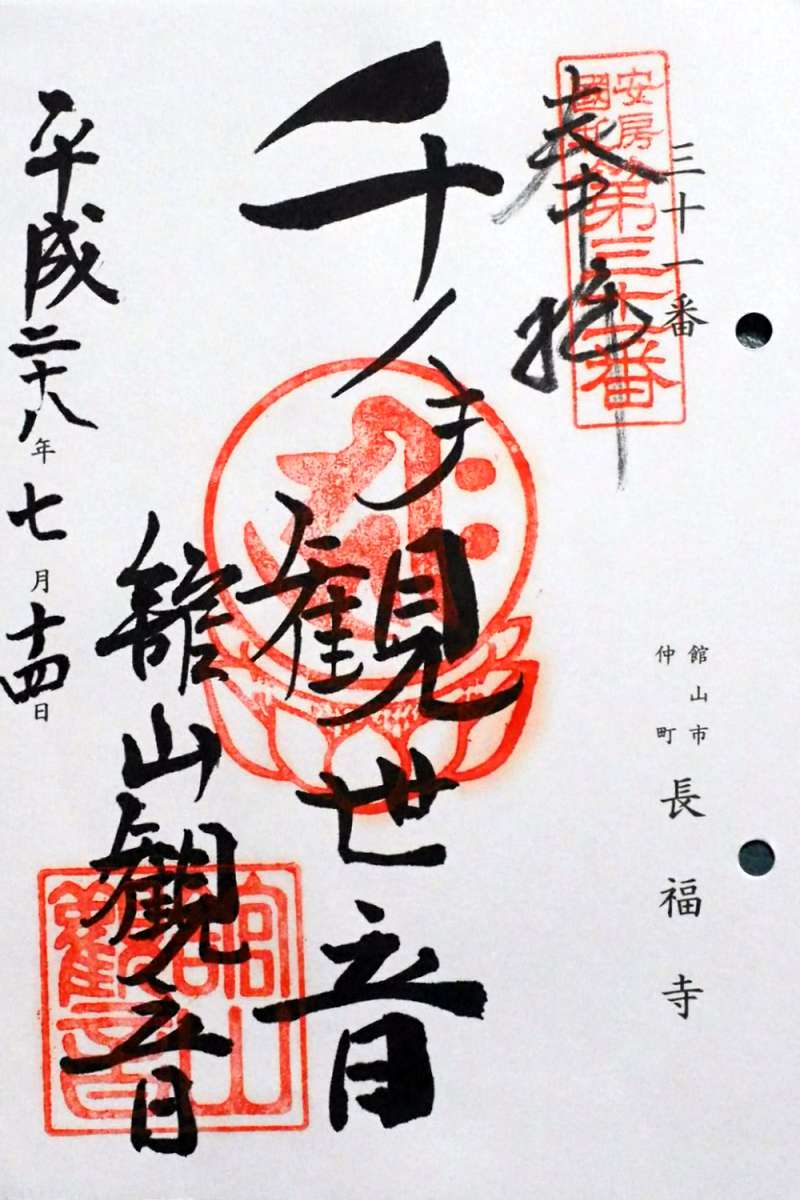 三十一番
館山市
仲町
長福寺
安房
國
第三十一番
奉拝
千手観世音
館山観音
館山
觀音
平成二十八年七月十四日